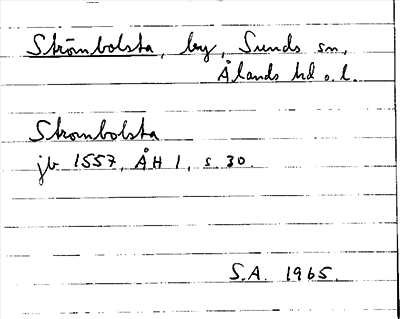 Strömbolsta, by, Sunds sn,
Ålands hd o. l.
Strombolsta
jb 1557, ÅH 1, s 30.
S.A. 1965.